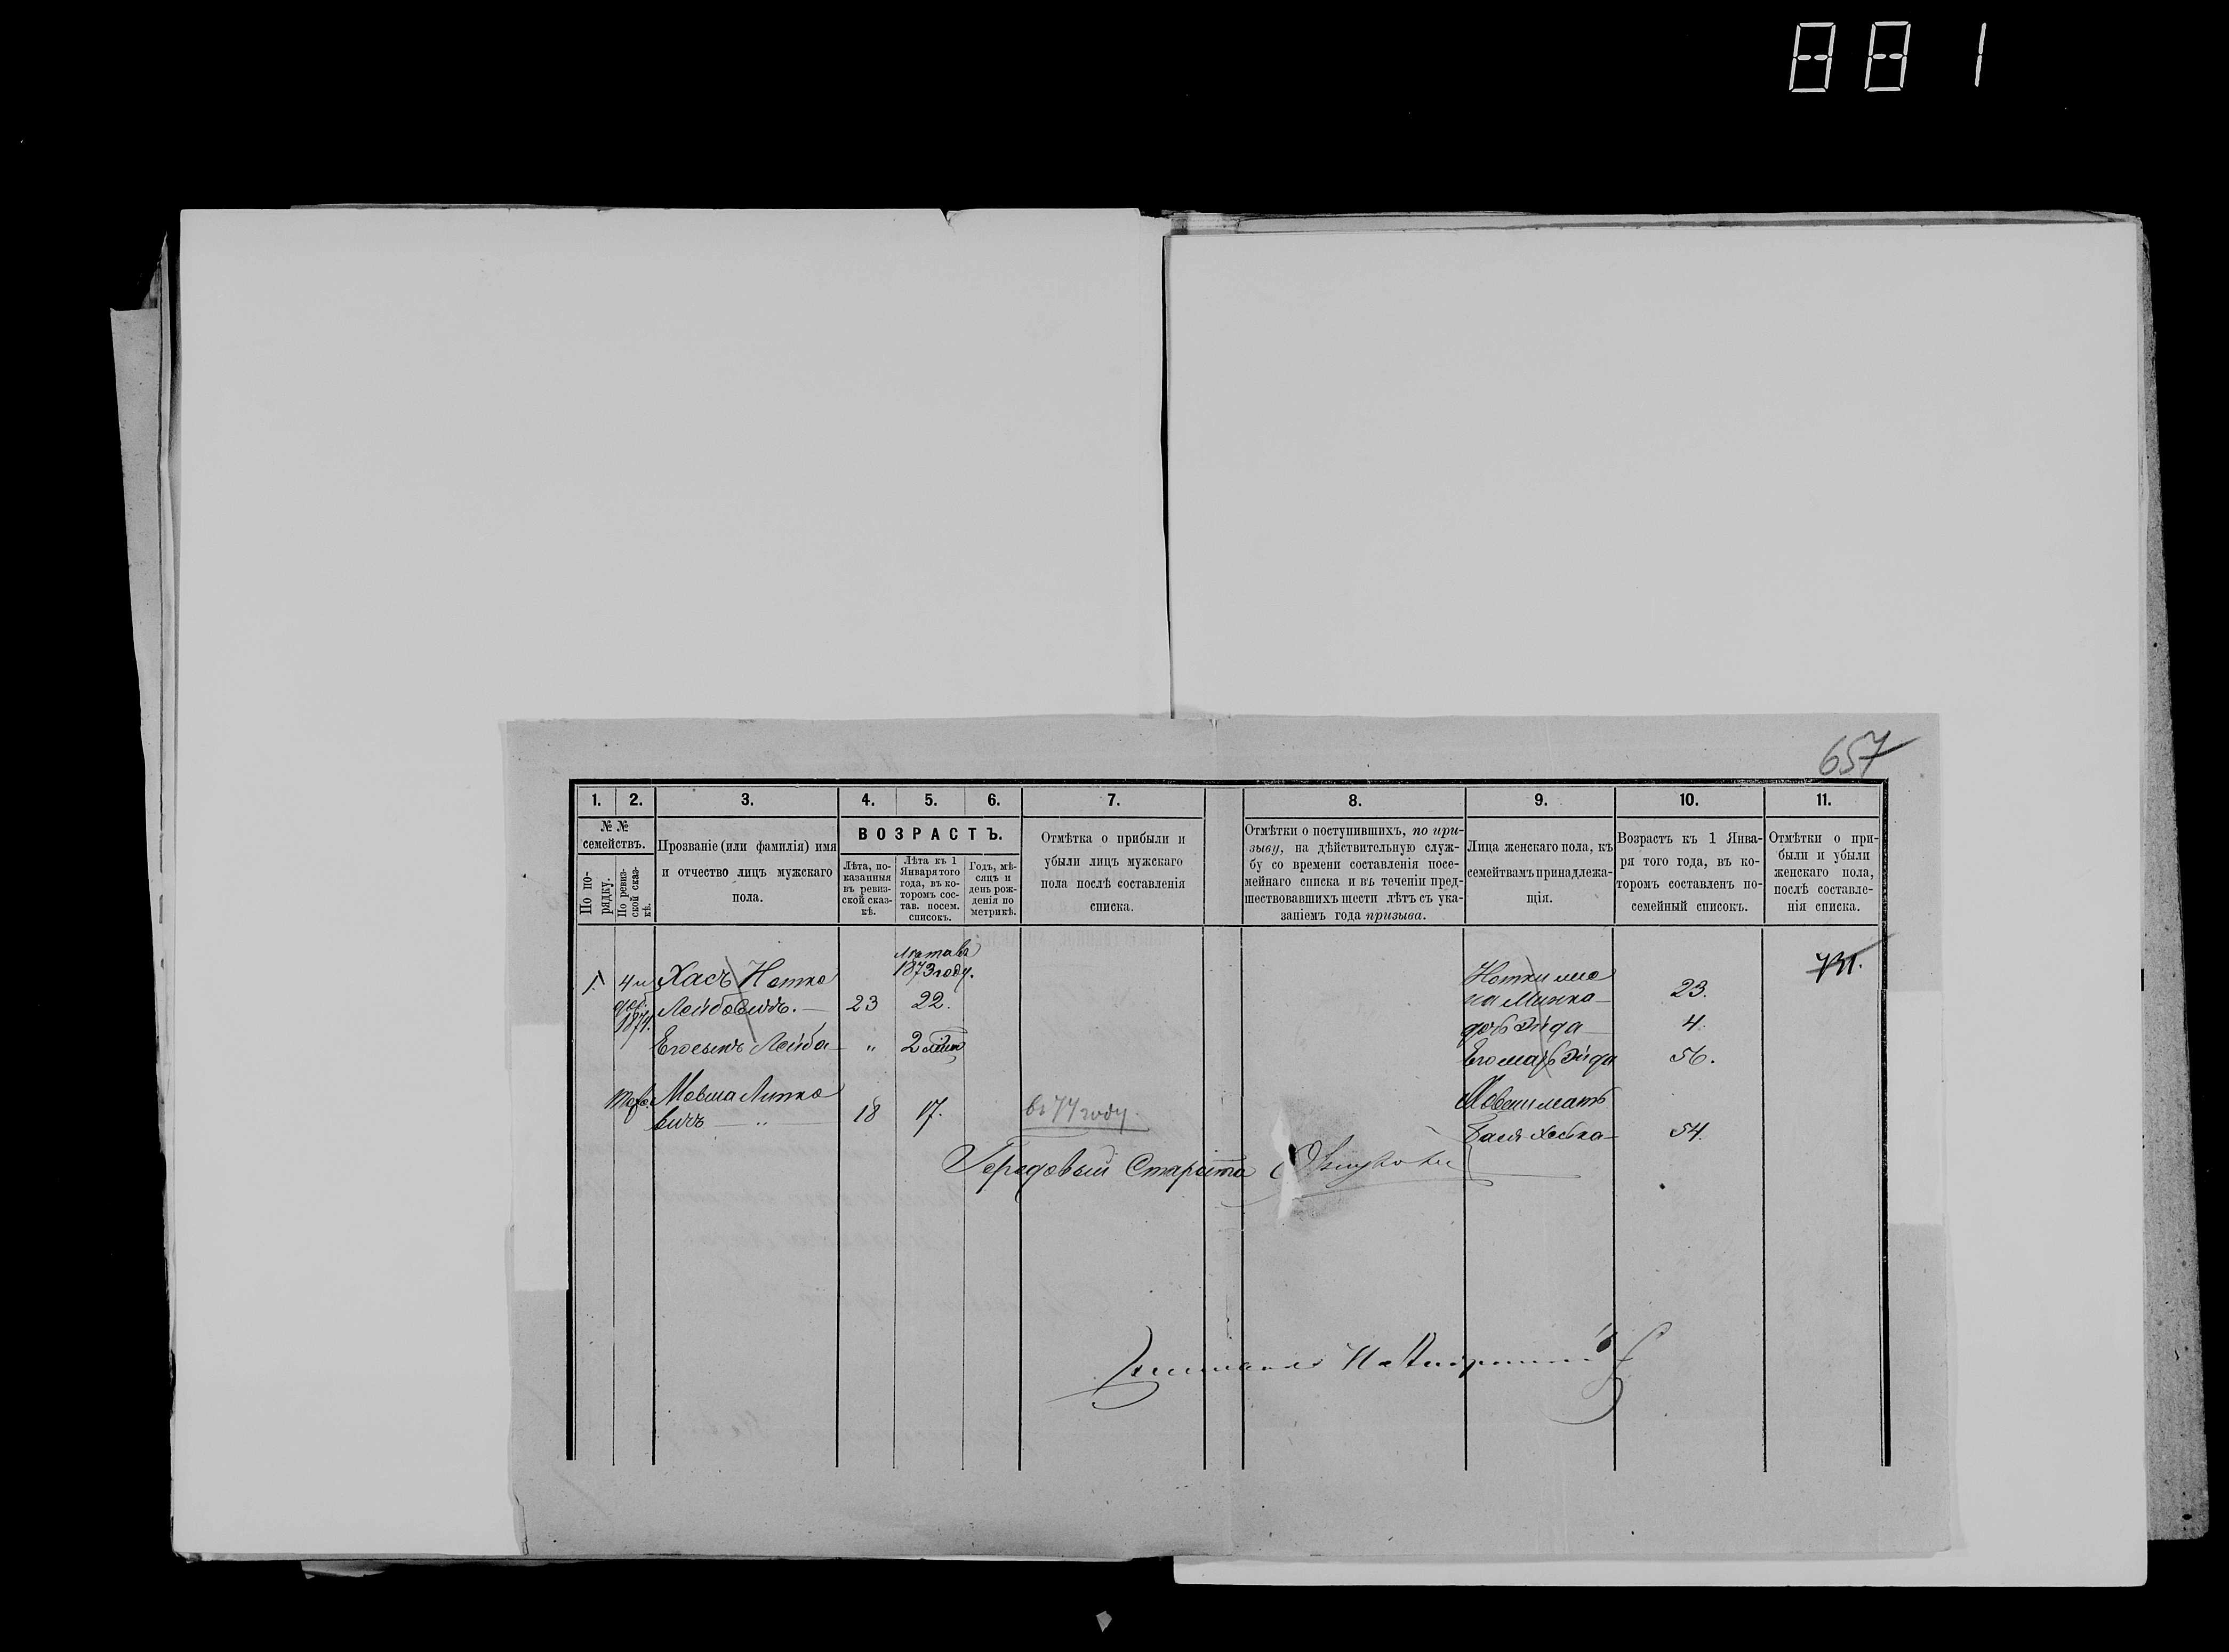 881
657
1. 2. 3. 4. 5. 6. 7. 8. 9. 10. 11.
№ №
семействъ.
По по-
рядку.
По ревиз-
ской сказ-
кѣ.
Прозваніе (или фамилія) имя
и отчество лицъ мужскаго
пола.
ВОЗРАСТЪ.
Лѣта, по-
казанныя
въ ревиз-
ской сказ-
кѣ.
Лѣта къ 1
Января того
года, въ ко-
торомъ сос-
тав. посем.
списокъ.
Годъ, мѣ-
сяцъ и
день рож-
денія по
метрикѣ.
Отмѣтка о прибыли и
убыли лицъ мужскаго
пола послѣ составленія
списка.
Отмѣтки о поступившихъ, по при-
зыву, на дѣйствительную служ-
бу со времени составленія посе-
мейнаго списка и въ теченіи пред-
шествовавшихъ шести лѣтъ съ ука-
заніемъ года призыва.
Лица женскаго пола, къ
семействамъ принадлежа-
щія.
Возрастъ къ 1 Янва-
ря того года, въ ко-
торомъ составленъ по-
семейный списокъ.
Отмѣтки о при-
были и убыли
женскаго пола,
послѣ составле-
нія списка.
1873 году.
1. 4 Хасъ Нотка
1874. Лейбовичъ. 23 22. Минка 23.
дочь Эйда 4.
Его сынъ Лейба " 2 Его мать Эйда 56.
Мовша 18 17. въ 77 году. мать
вичъ " 54.
Городовый Староста